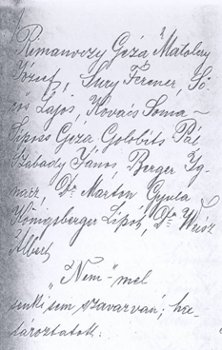 Rimanoczy Géza Matolcsy
József, Sury Ferencz, So-
ós Lajos, Kovács Soma
Siposs Géza Golobits Pál
Szabady János, Berger Ig-
nácz, Dr Márton Gyula
Königsberger Lipót, Dr
Albert
„Nem"-mel
senki sem szavazván; ha-
tároztatott: